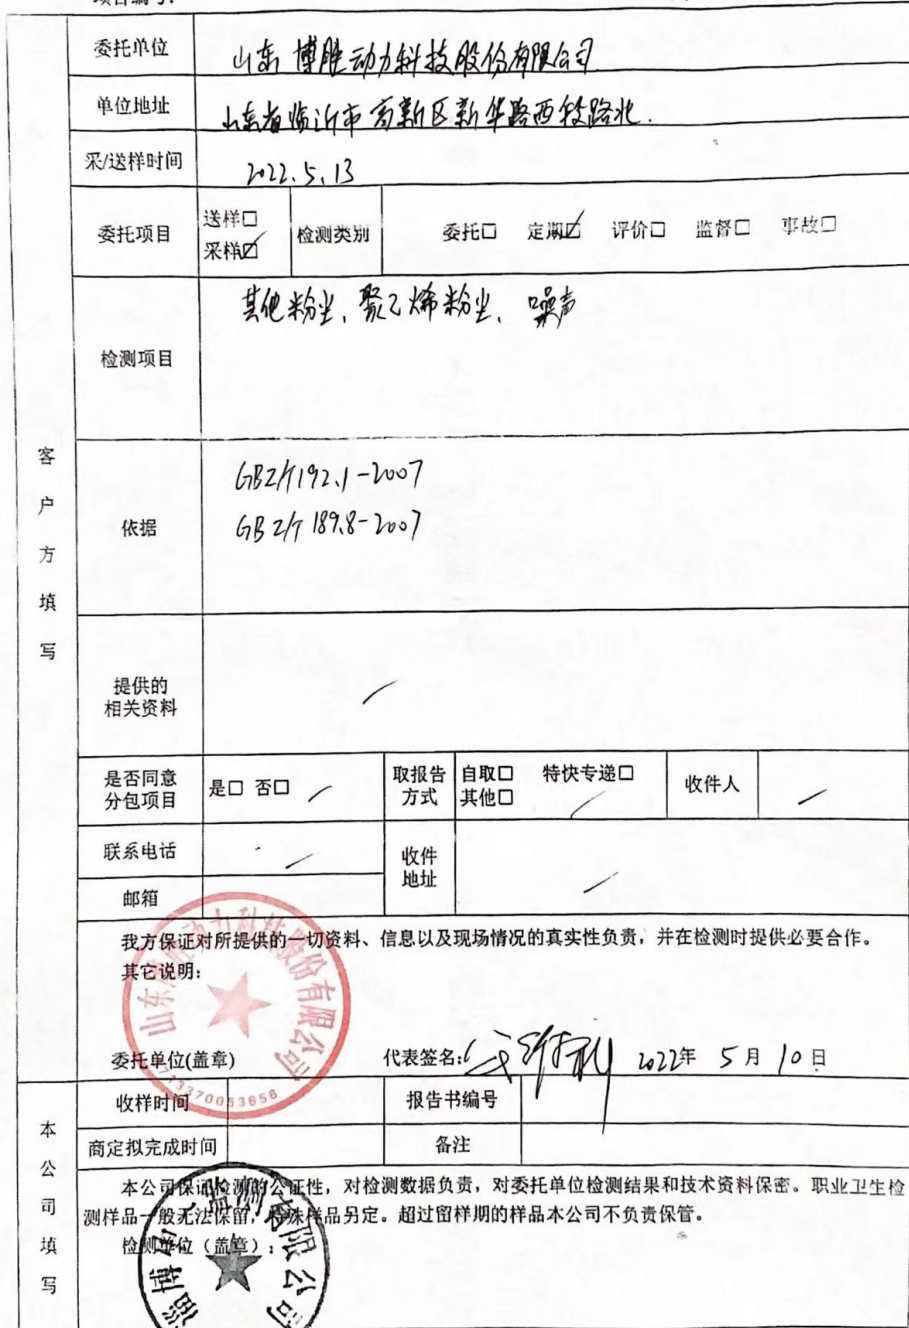 委托单位 山东博胜动力科技股份有限公司
单位地址 山东省临沂市高新区新华路西段路北.
采/送样时间 2022.5.13
委托项目 送样□ 采样☑ 检测类别 委托□ 定期☑ 评价□ 监督□ 事故□
检测项目 其他粉尘、聚乙烯粉尘、噪声
客户方填写
依据 GBZ/T192.1-2007
GBZ/T 189.8-2007
提供的
相关资料 /
是否同意
分包项目 是□ 否□ / 取报告
方式 自取□ 特快专递□
其他□ / 收件人 /
联系电话 / 收件
地址 /
邮箱
我方保证对所提供的一切资料、信息以及现场情况的真实性负责，并在检测时提供必要合作。
其它说明：
委托单位(盖章) 代表签名: 2022年 5月 10日
山东博胜动力科技股份有限公司
3370053658
收样时间 报告书编号
商定拟完成时间 备注
本公司填写
本公司保证检测的公证性，对检测数据负责，对委托单位检测结果和技术资料保密。职业卫生检
测样品一般无法保留，特殊样品另定。超过留样期的样品本公司不负责保管。
检测单位（盖章）: